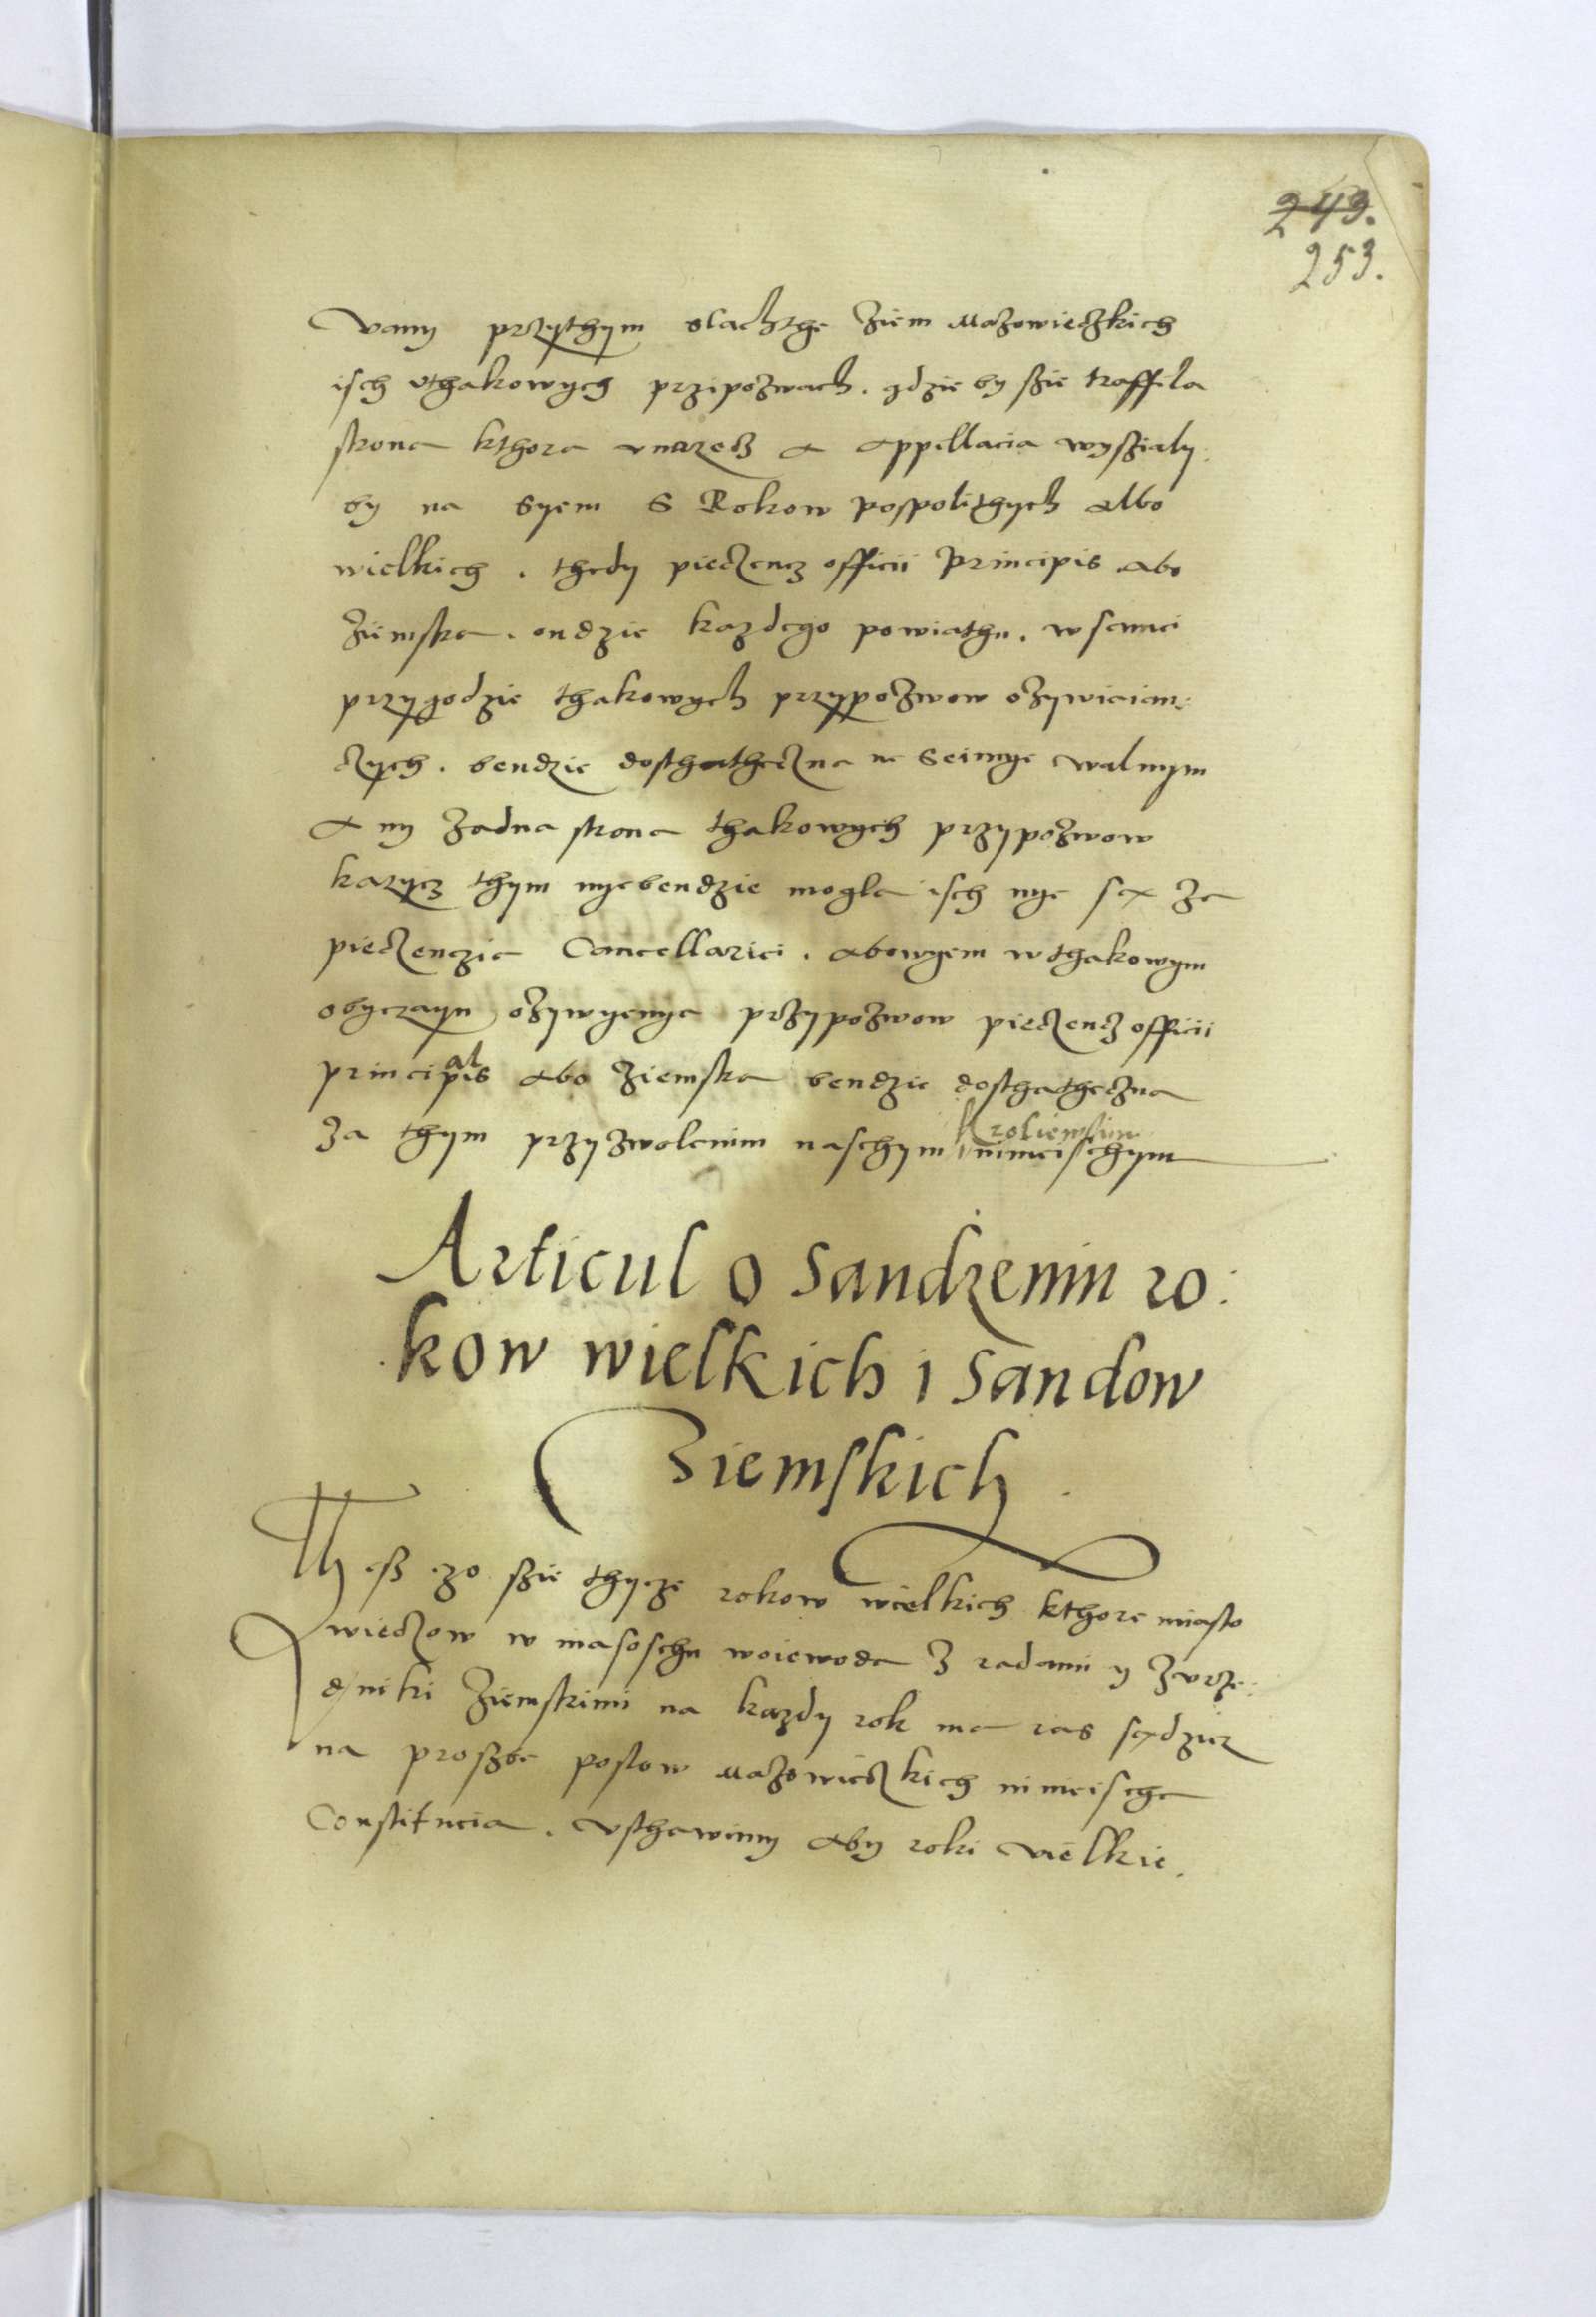 249.
253.
vamy przythym slachthę Ziem Mazowieczkich
isch vthakowych przipozwach. gdzie by szie traffila
strona kthora vmrze & Appellacia wysziały
by na Syem S Rokow pospolithych albo
wielkich. thedy pieczencz officii Principis abo
Ziemska. ondzie kazdego powiathu. w
przygodzie thakowych przypozwow ozywiaian:
czych. bendzie dosthatheczna na Seimye walnym
A ny zadna strona thakowych przypozwow
karzycz thym nyebendzie mogla isch nye są za
pieczenczia Cancellariei. abowyem wthakowym
obyczayu ozywyenya przypozwow pieczencz officii
principis al abo Ziemska bendzie dosthatheczna
za thym przyzwolenim naschym Kroliewskim nineischym
Articul o sandzeniu ro:
kow wielkich i sandow
Ziemskich
Thesz czo szie thycze rokow wielkich kthore miasto
wieczow w masoschu woiewoda z radami y zvrzę:
dniki Ziemskimi na kazdy rok ma ras sądzicz
na proszbę posłow Mazowieczkich nineischa
Constitucia. vsthawimy aby roki wielkie.